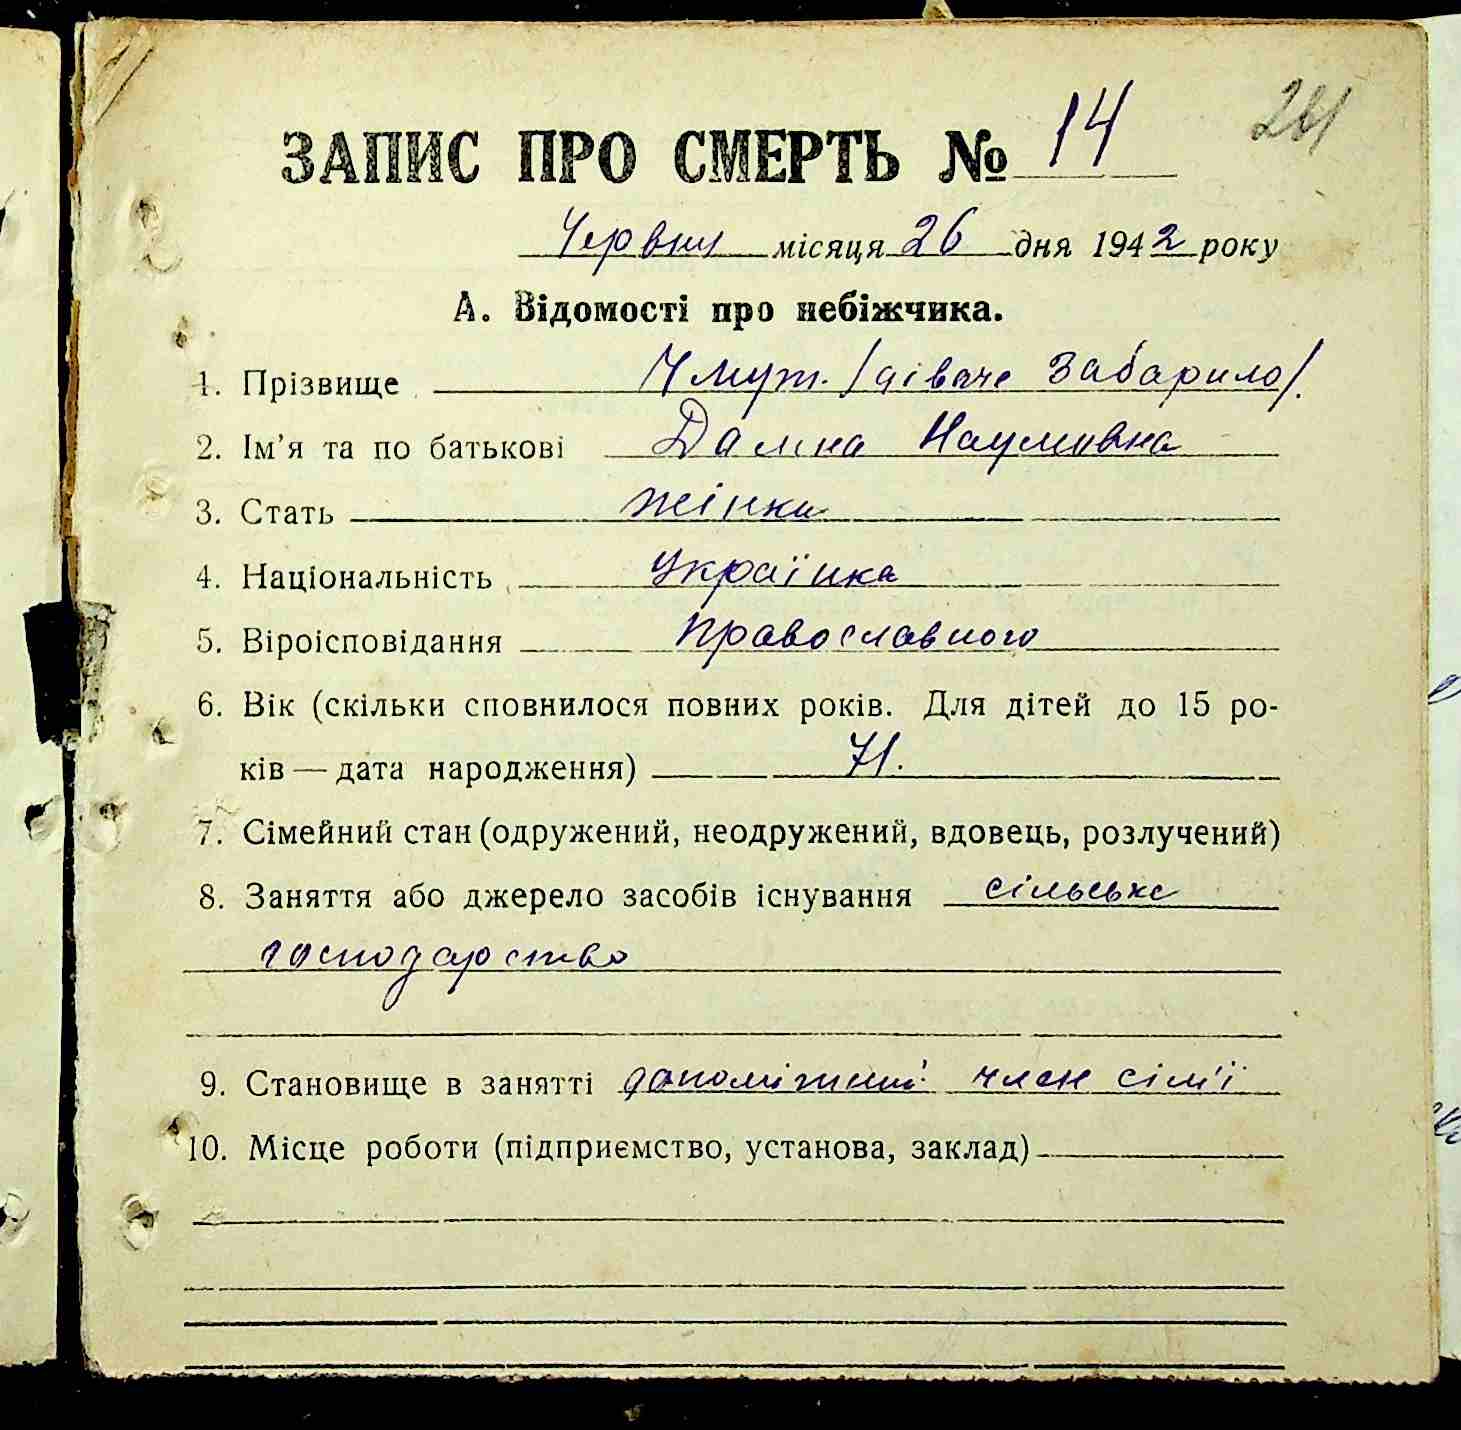 ЗАПИС ПРО СМЕРТЬ № 14
261
Червня місяця 26 дня 1942 року
А. Відомості про небіжчика.
1. Прізвище Чмут. /дівоче Забарило/.
2. Ім'я та по батькові Домна Наумовна
3. Стать жінка
4. Національність Українка
5. Віроісповідання православного
6. Вік (скільки сповнилося повних років. Для дітей до 15 ро-
ків — дата народження) 71.
7. Сімейний стан (одружений, неодружений, вдовець, розлучений)
8. Заняття або джерело засобів існування сільське
господарство
9. Становище в занятті допоміжний член сім'ї
10. Місце роботи (підприємство, установа, заклад)